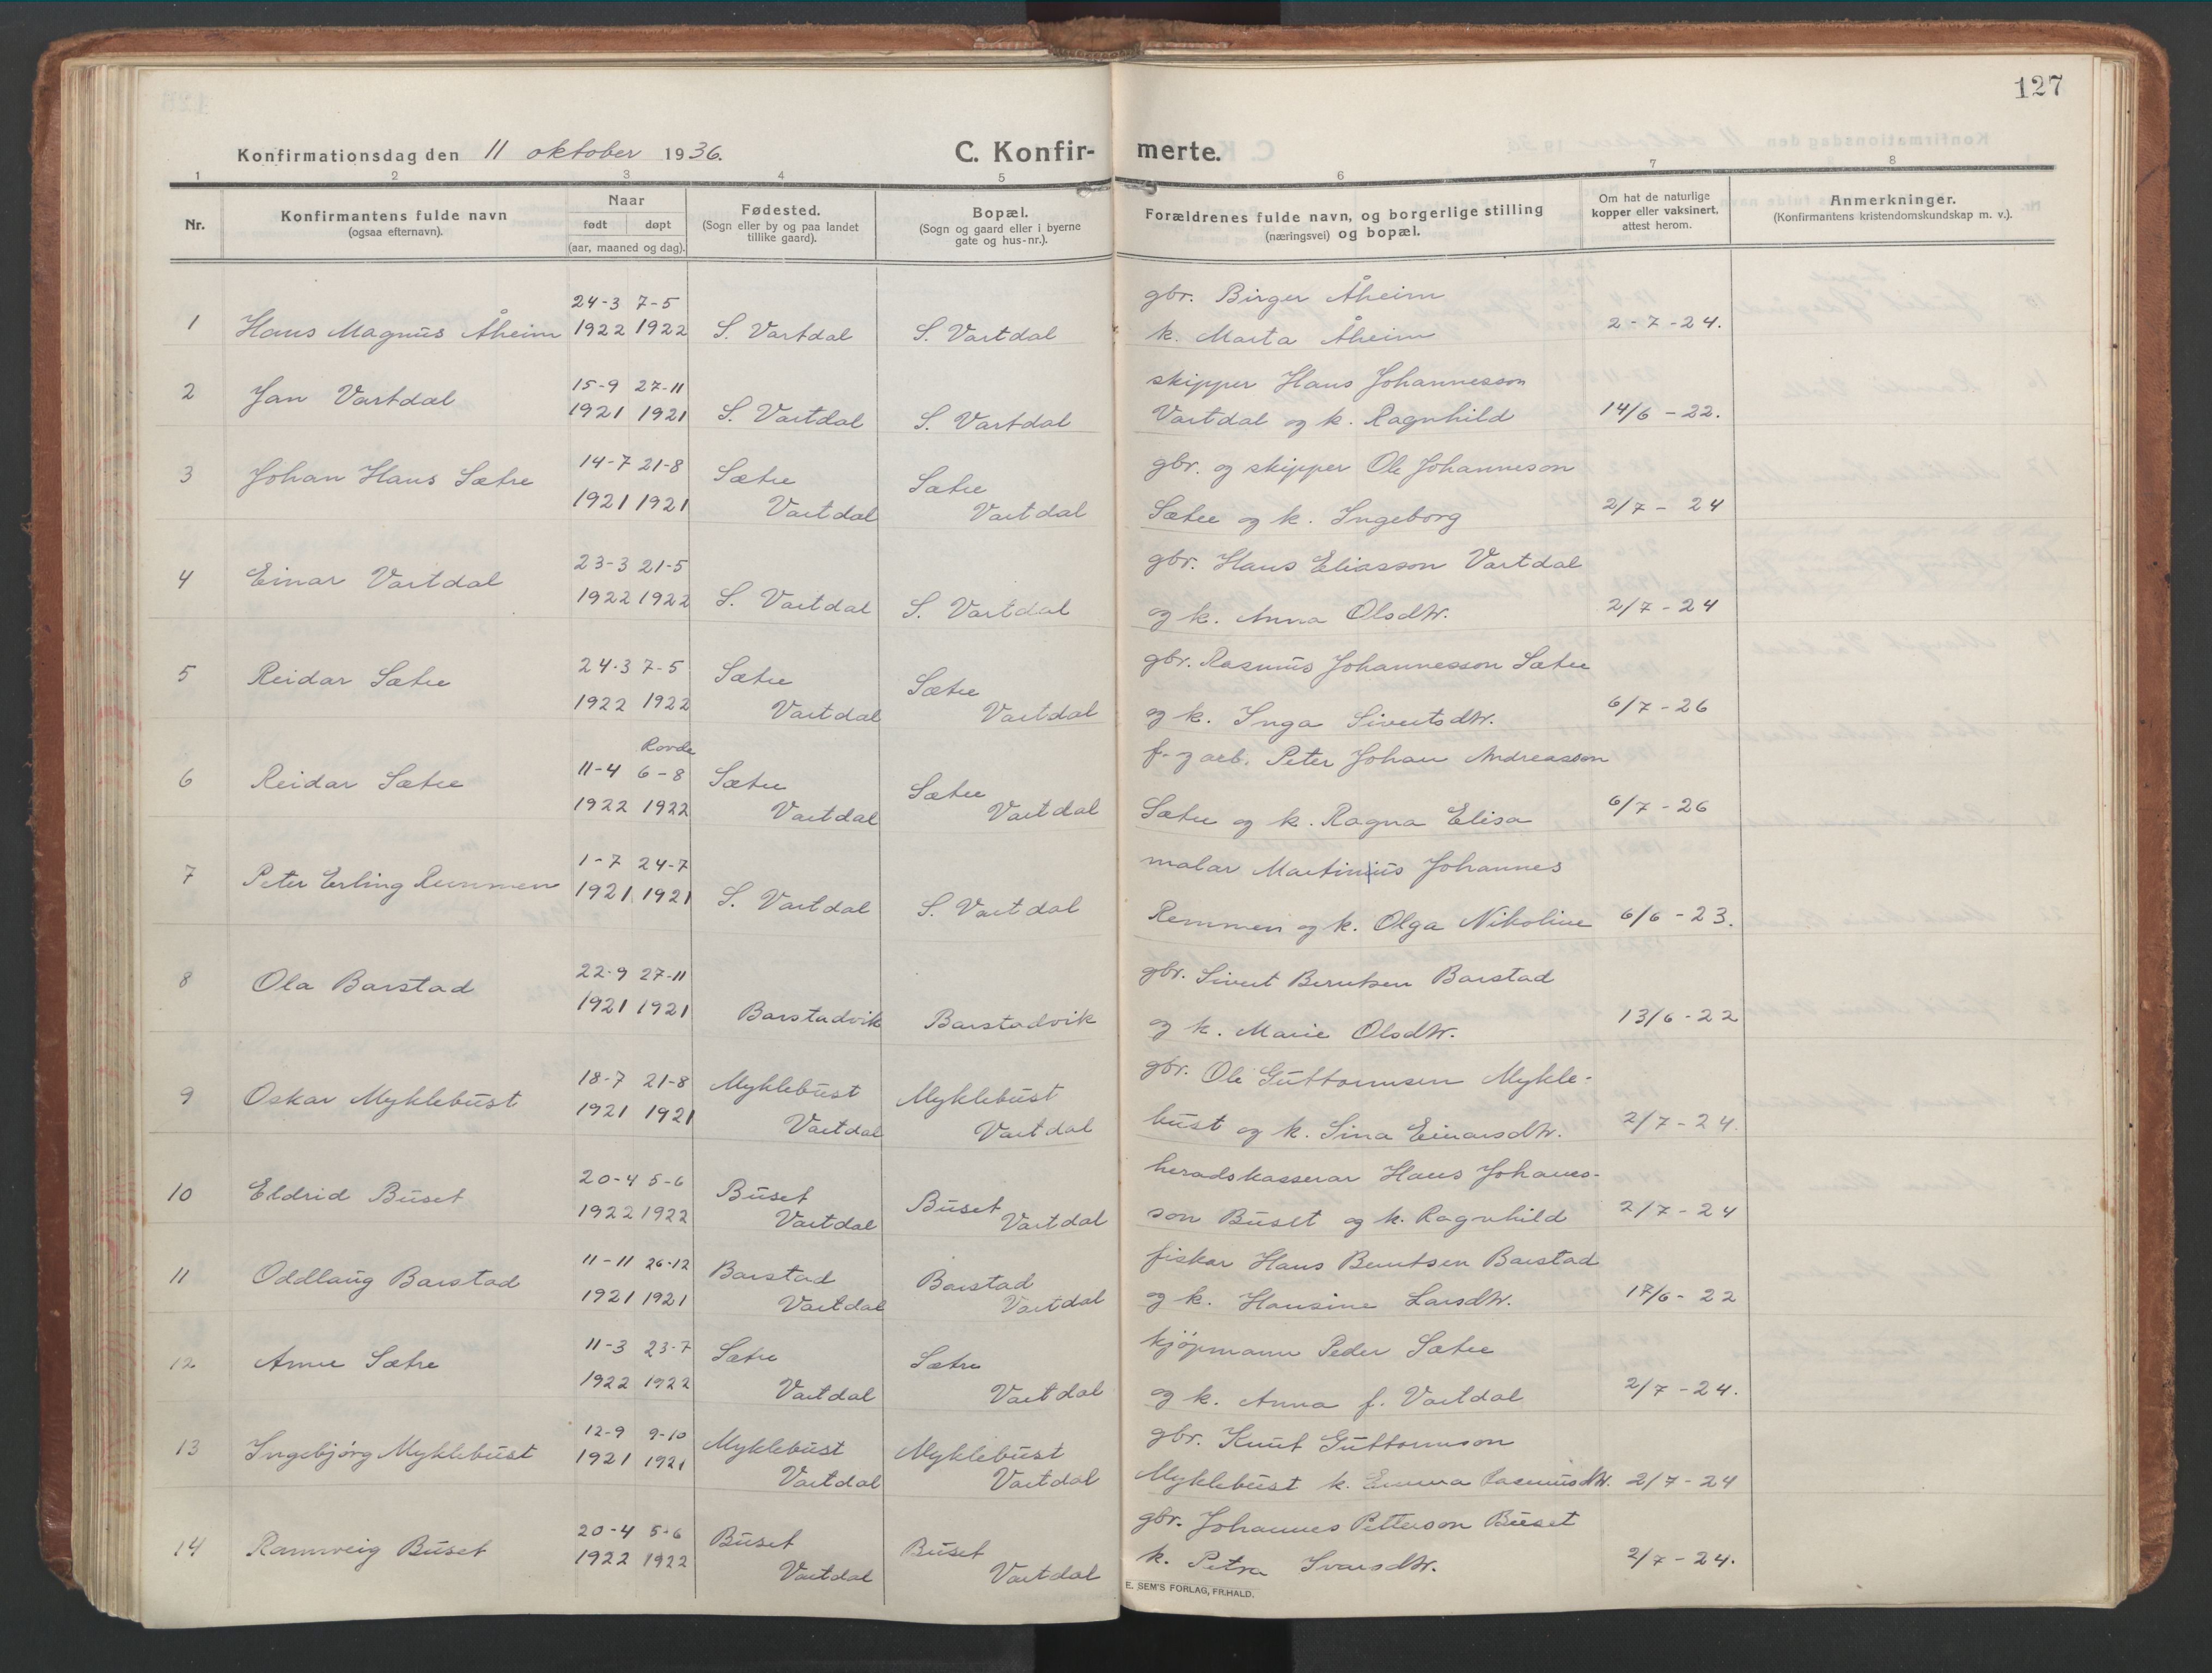 127
Konfirmationsdag den 11 oktober 1936. C. Konfir- merte.
1 2 3 4 5 6 7 8
Nr. Konfirmantens fulde navn (ogsaa efternavn). Naar født døpt (aar, maaned og dag). Fødested. (Sogn eller by og paa landet tillike gaard). Bopæl. (Sogn og gaard eller i byerne gate og hus-nr.). Forældrenes fulde navn, og borgerlige stilling (næringsvei) og bopæl. Om hat de naturlige kopper eller vaksinert, attest herom. Anmerkninger. (Konfirmantens kristendomskundskap m. v.).
24-3 7-5 gbr. Birger Åheim
1 Hans Magnus Åheim 1922 1922 S. Vartdal S. Vartdal k. Marta Åheim 2-7-24.
15-9 27-11 skipper Hans Johannesson
2 Jan Vartdal 1921 1921 S. Vartdal S. Vartdal Vartdal og k. Ragnhild 14/6-22.
14-7 21-8 Sætre Sætre gbr. og skipper Ole Johanneson
3 Johan Hans Sætre 1921 1921 Vartdal Vartdal Sætre og k. Ingeborg 2/7-24
23-3 21-5 gbr. Hans Eliasson Vartdal
4 Einar Vartdal 1922 1922 S. Vartdal S. Vartdal og k. Anna Olsdtr. 2/7-24
24-3 7-5 Sætre Sætre gbr. Rasmus Johannesson Sætre
5 Reidar Sætre 1922 1922 Vartdal Vartdal og k. Inga Sivertsdtr. 6/7-26
Rovde
11-4 6-8 Sætre Sætre f. g arb. Peter Johan Andreasson
6 Reidar Sætre 1922 1922 Vartdal Vartdal Sætre og k. Ragna Elisa 6/7-26
1-7 24-7 malar Martinius Johannes
7 Peter Erling Remmen 1921 1921 S. Vartdal S. Vartdal Remmen og k. Olga Nikoline 6/6-23.
22-9 27-11 gbr. Sivert Berntsen Barstad
8 Ola Barstad 1921 1921 Barstadvik Barstadvik og k. Marie Olsdtr. 13/6-22
18-7 21-8 Myklebust Myklebust gbr. Ole Guttormsen Mykle-
9 Oskar Myklebust 1921 1921 Vartdal Vartdal bust og k. Sina Einarsdtr. 2/7-24.
20-4 5-6 Buset Buset heradskasserar Hans Johanes-
10 Eldrid Buset 1922 1922 Vartdal Vartdal son Buset og k. Ragnhild 2/7-24
11-11 26-12 Barstad Barstad fiskar Hans Berntsen Barstad
11 Oddlaug Barstad 1921 1921 Vartdal Vartdal og k. Hansine Larsdtr. 17/6-22
11-3 23-7 Sætre Sætre kjøpmann Peder Sætre
12 Anne Sætre 1922 1922 Vartdal Vartdal og k. Anna f. Vartdal 2/7-24.
12-9 9-10 Myklebust Myklebust gbr. Knut Guttormson
13 Ingebjørg Myklebust 1921 1921 Vartdal Vartdal Myklebust k. Emma Rasmusdtr. 2/7-24
20-4 5-6 Buset Buset gbr. Johannes Petterson Buset
14 Rannveig Buset 1922 1922 Vartdal Vartdal k. Petra Ivarsdtr. 2/7-24.
E. SEM'S FORLAG, FR.HALD.